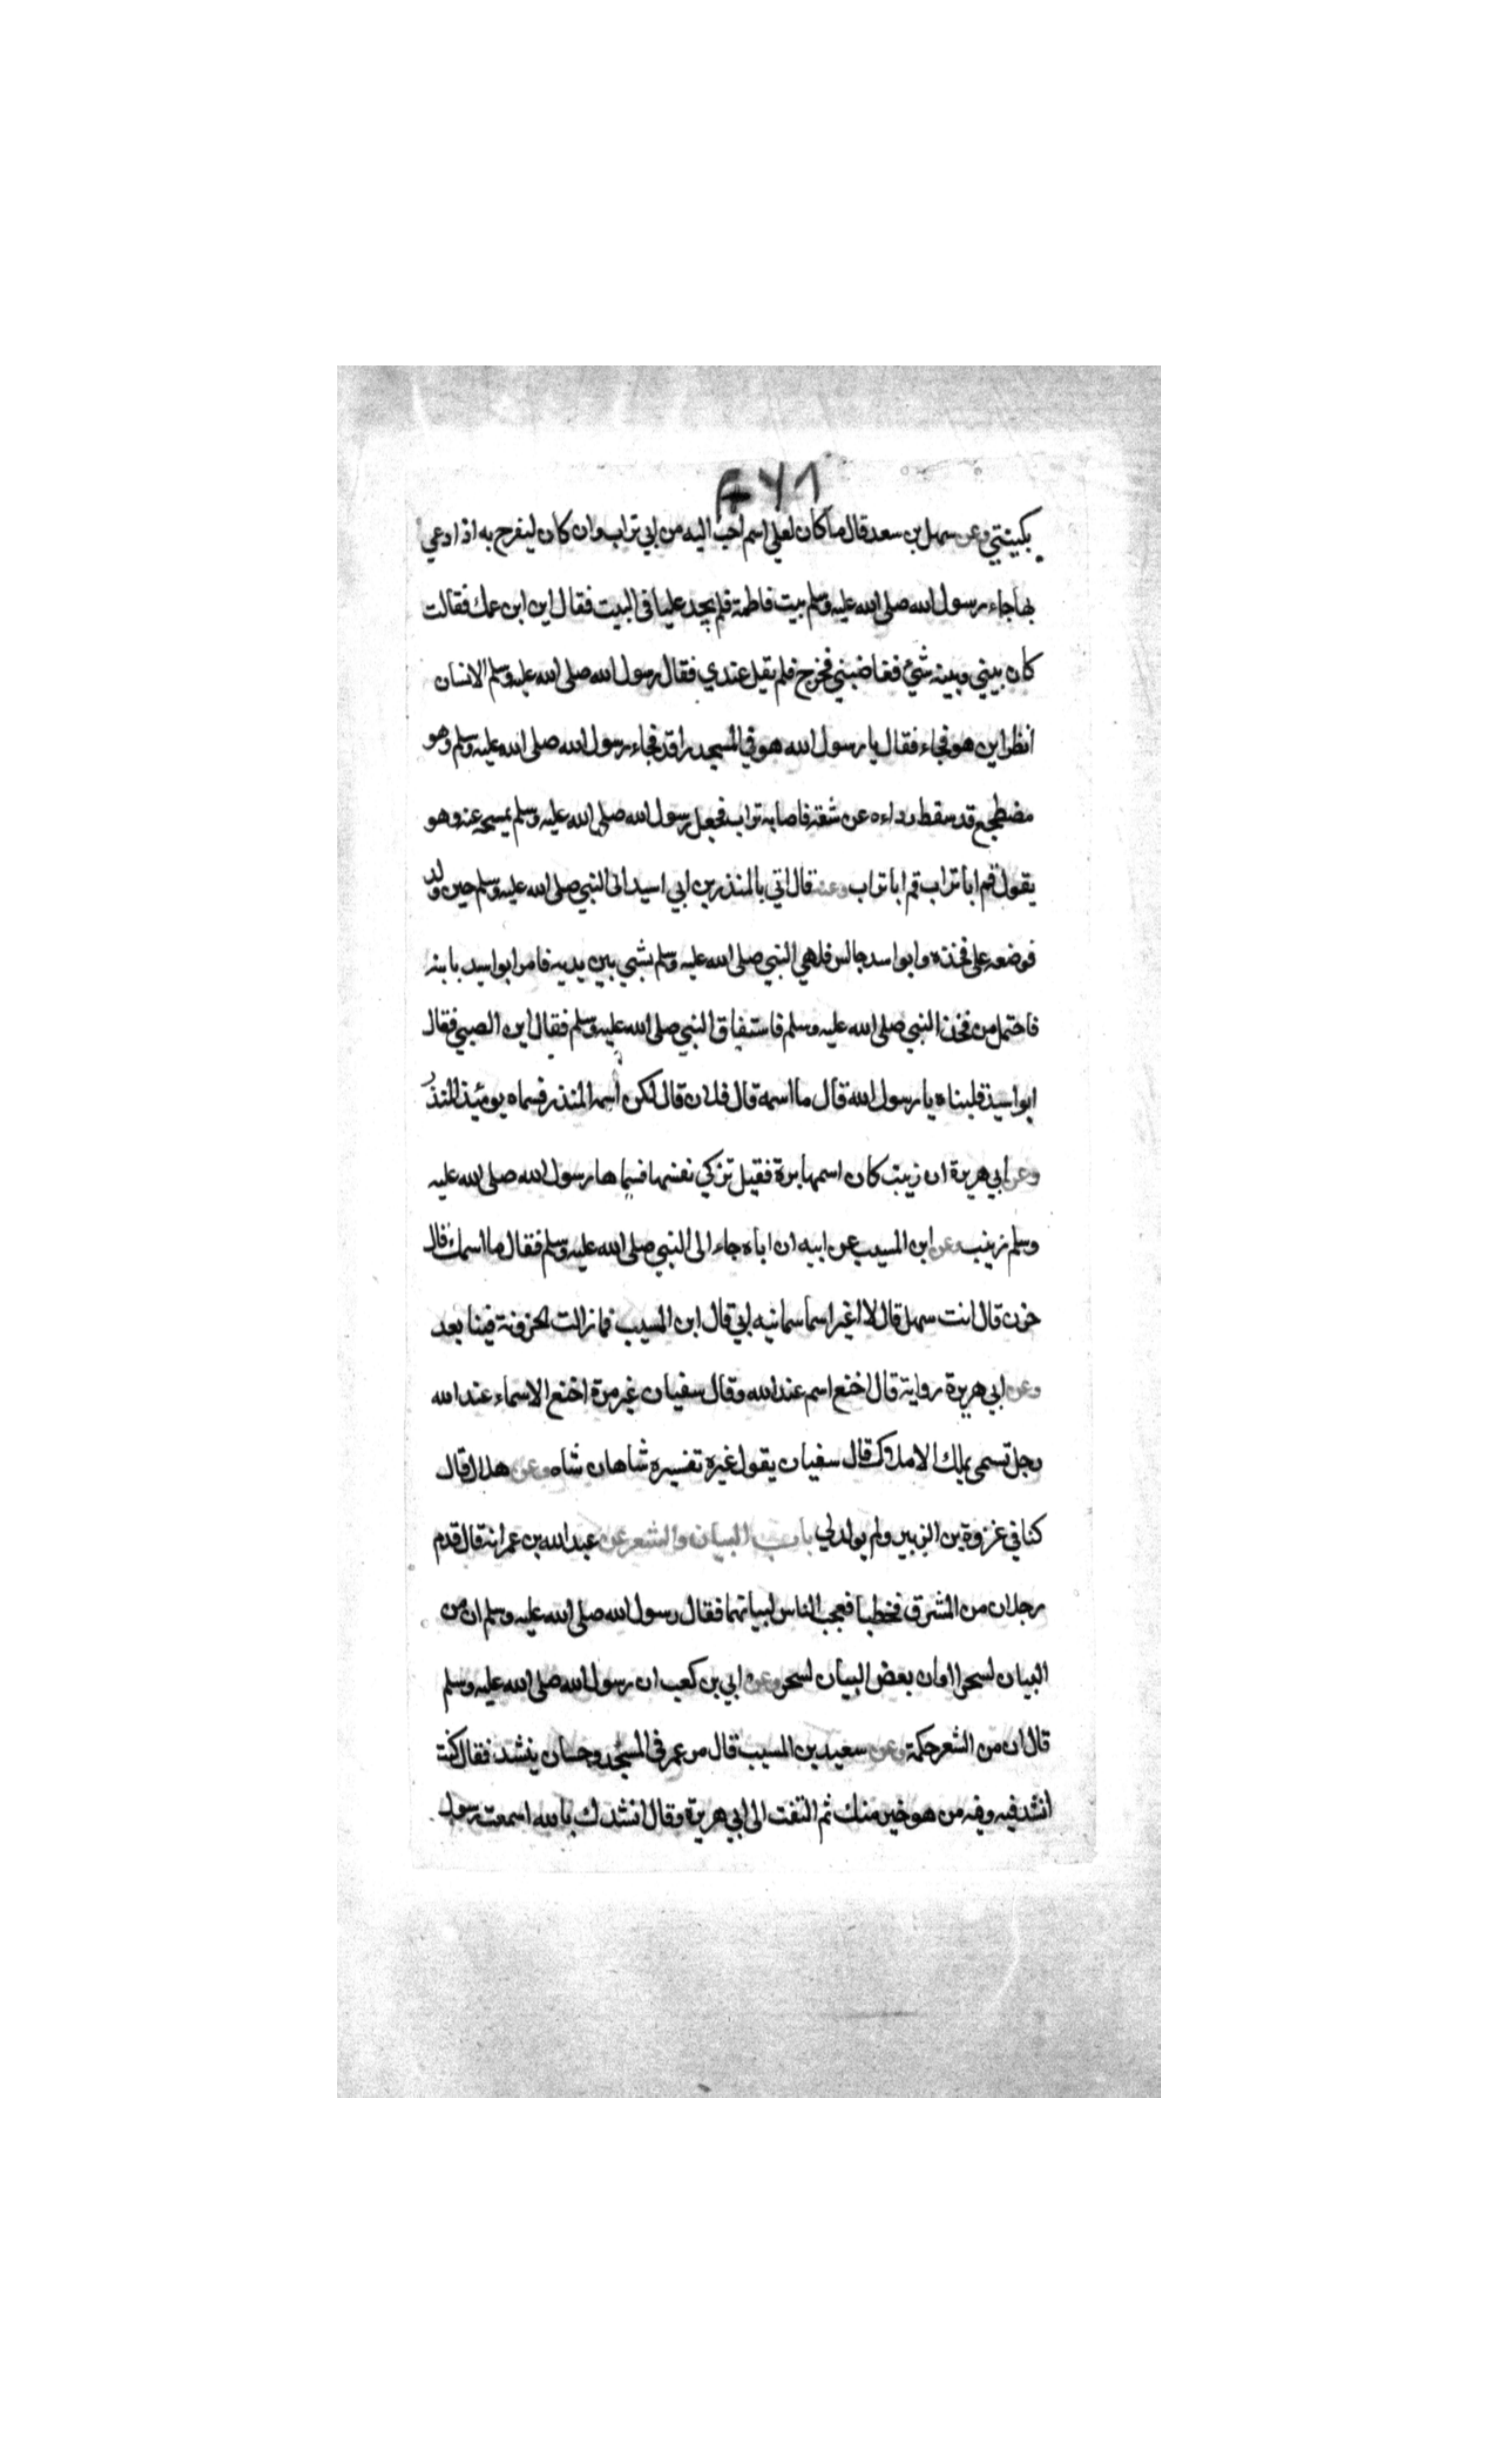 ٢٦٨
بكنيتي وعن سهل بن سعد قال ما كان لعلي اسم احب اليه من ابي تراب وان كان ليفرح به اذا دعي
بها جاء رسول الله صلى الله عليه وسلم بيت فاطمة فلم يجد عليا في البيت فقال اين ابن عمك فقالت
كان بيني وبينه شئ فغاضبني فخرج فلم يقل عندي فقال رسول الله صلى الله عليه وسلم لانسان
انظر اين هو فجاء فقال يا رسول الله هو في المسجد راقد فجاء رسول الله صلى الله عليه وسلم وهو
مضطجع قد سقط رداءه عن شقه فاصابه تراب فجعل رسول الله صلى الله عليه وسلم يمسحه عنه وهو
يقول قم ابا تراب قم ابا تراب وعنه قال اتي بالمنذر بن ابي اسيد الى النبي صلى الله عليه وسلم حين ولد
فوضعه على فخذه وابو اسيد جالس فلهي النبي صلى الله عليه وسلم بشي بين يديه فامر ابو اسيد بابنه
فاحتمل من فخذ النبي صلى الله عليه وسلم فاستفاق النبي صلى الله عليه وسلم فقال اين الصبي فقال
ابو اسيد قلبناه يا رسول الله قال ما اسمه قال فلان قال لكن اسمه المنذر فسماه يومئذ المنذر
وعن ابي هريرة ان زينب كان اسمها برة فقيل تزكي نفسها فسماها رسول الله صلى الله عليه
وسلم زينب وعن ابن المسيب عن ابيه ان اباه جاء الى النبي صلى الله عليه وسلم فقال ما اسمك قال
حزن قال انت سهل قال لا اغير اسما سمانيه ابي قال ابن المسيب فما زالت الحزونة فينا بعد
وعن ابي هريرة رواية قال اخنع اسم عند الله وقال سفيان غير مرة اخنع الاسماء عند الله
رجل تسمى بملك الاملاك قال سفيان يقول غيره تفسيره شاهان شاه وعن هلال قال
كنا في عزوة بن الزبير ولم يولد لي باب البيان والشعر عن عبد الله بن عمر انه قال قدم
رجلان من المشرق فخطبا فعجب الناس لبيانهما فقال رسول الله صلى الله عليه وسلم ان من
البيان لسحرا او ان بعض البيان لسحر وعن ابي بن كعب ان رسول الله صلى الله عليه وسلم
قال ان من الشعر حكمة وعن سعيد بن المسيب قال مر عمر في المسجد وحسان ينشد فقال كنت
انشد فيه وفيه من هو خير منك ثم التفت الى ابي هريرة وقال انشدك بالله اسمعت رسول